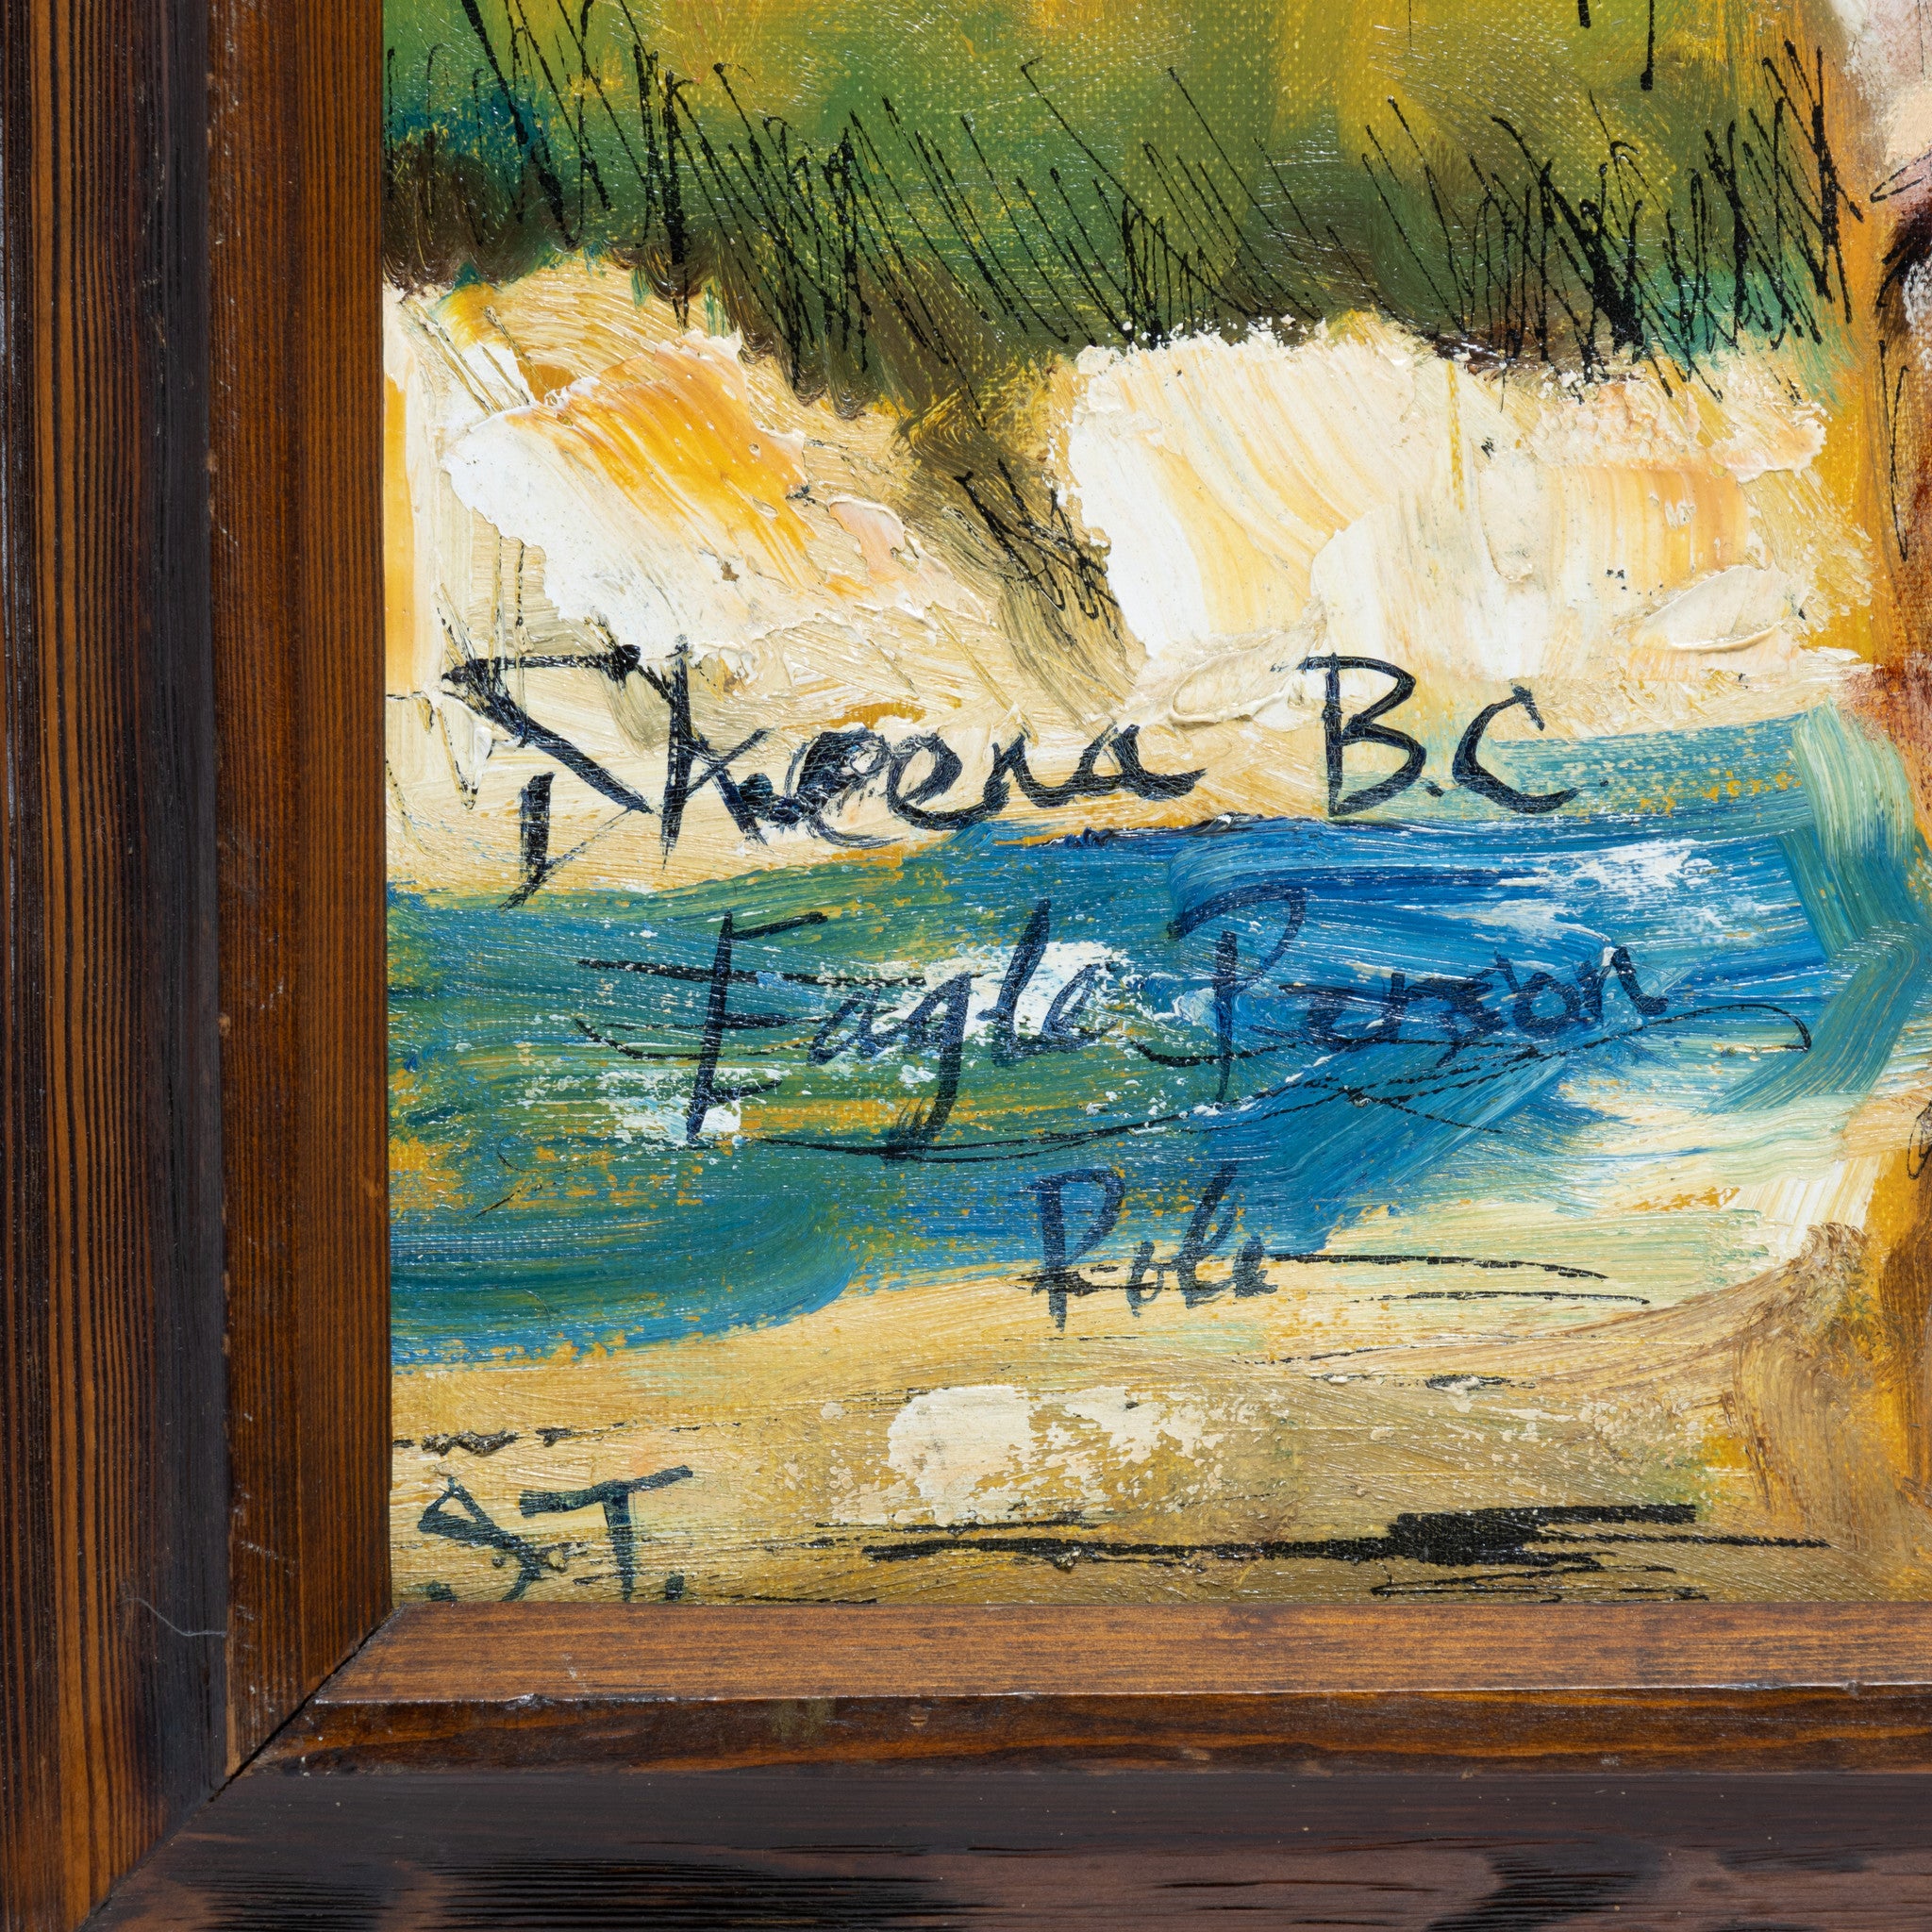 Skeena B.C.
Eagle Person
Pole
S.T.